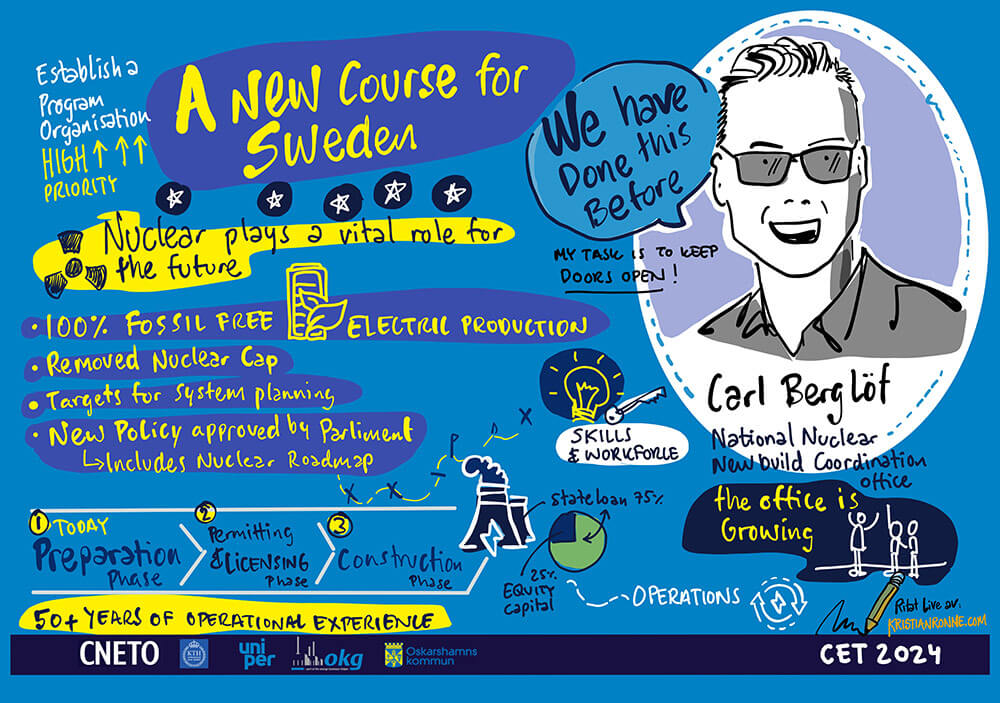 Establish a
Program
Organisation
HIGH ↑ ↑ ↑
PRIORITY
A New Course for
Sweden
We have
Done this
Before
MY TASK IS TO KEEP
DOORS OPEN!
Nuclear plays a vital role for
the future
• 100% FOSSIL FREE ELECTRIC PRODUCTION
• Removed Nuclear Cap
• Targets for System planning
• New Policy approved by Parliment
↳ Includes Nuclear Roadmap
Carl Berglöf
National Nuclear
Newbuild Coordination
office
SKILLS
& WORKFORCE
the office is
Growing
1 TODAY
Preparation
Phase
2
Permitting
& LICENSING
Phase
3
Construction
Phase
State loan 75%
25%
EQUITY
Capital
OPERATIONS
50+ YEARS OF OPERATIONAL EXPERIENCE
Ritat Live av:
KRISTIANRONNE.COM
CNETO
KTH
uni
per
okg
Oskarshamns
kommun
CET 2024